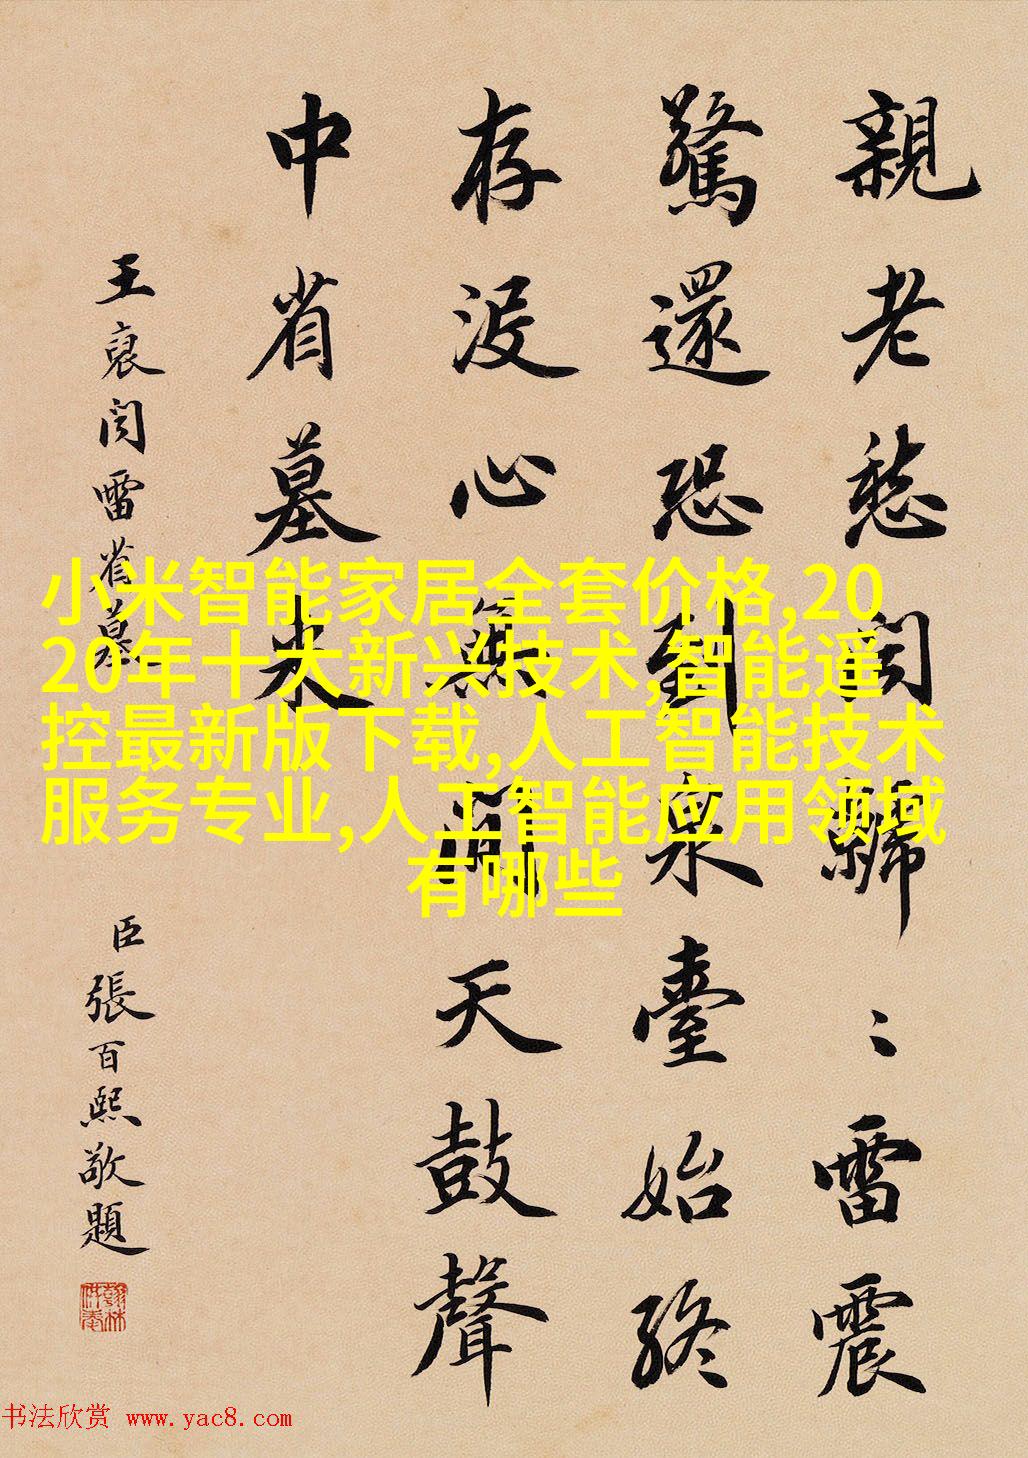 親老愁聞歸〻雷震
驚還恐到泉臺始終
存没心無間天鼓聲
中省墓来
王裒聞雷省墓
臣張百熙敬題
翰林供奉
小米智能家居全套价格,20
20年十大新兴技术,智能遥
控最新版下载,人工智能技术
服务专业,人工智能应用领域
有哪些
书法欣赏 www.yac8.com